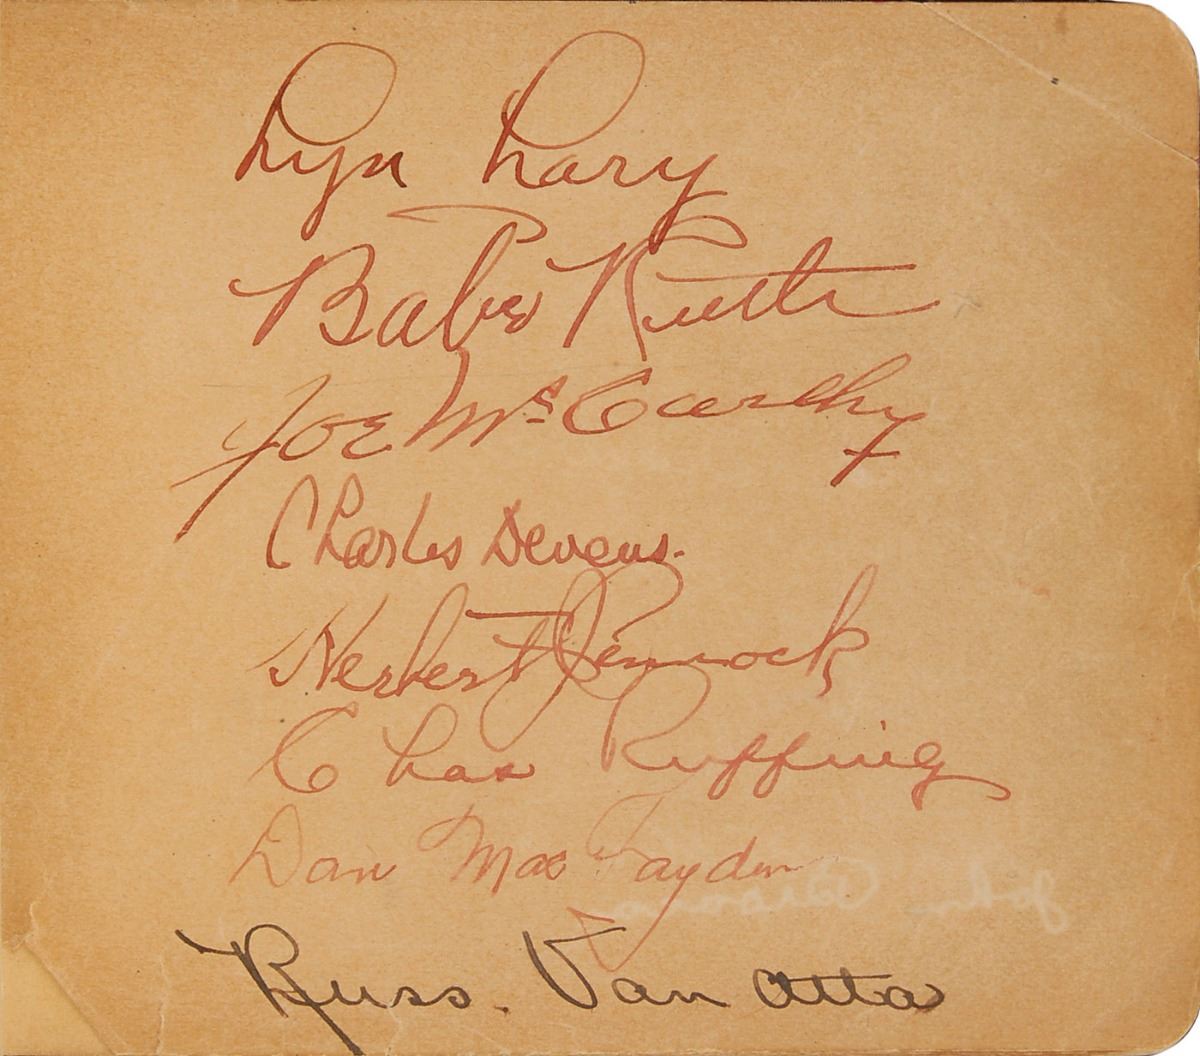 Lyn Lary
Babe Ruth
Joe McCarthy
Charles Devens.
Herbert J Pennock
Chas Ruffing
Dan MacFayden
Russ. Van Atta